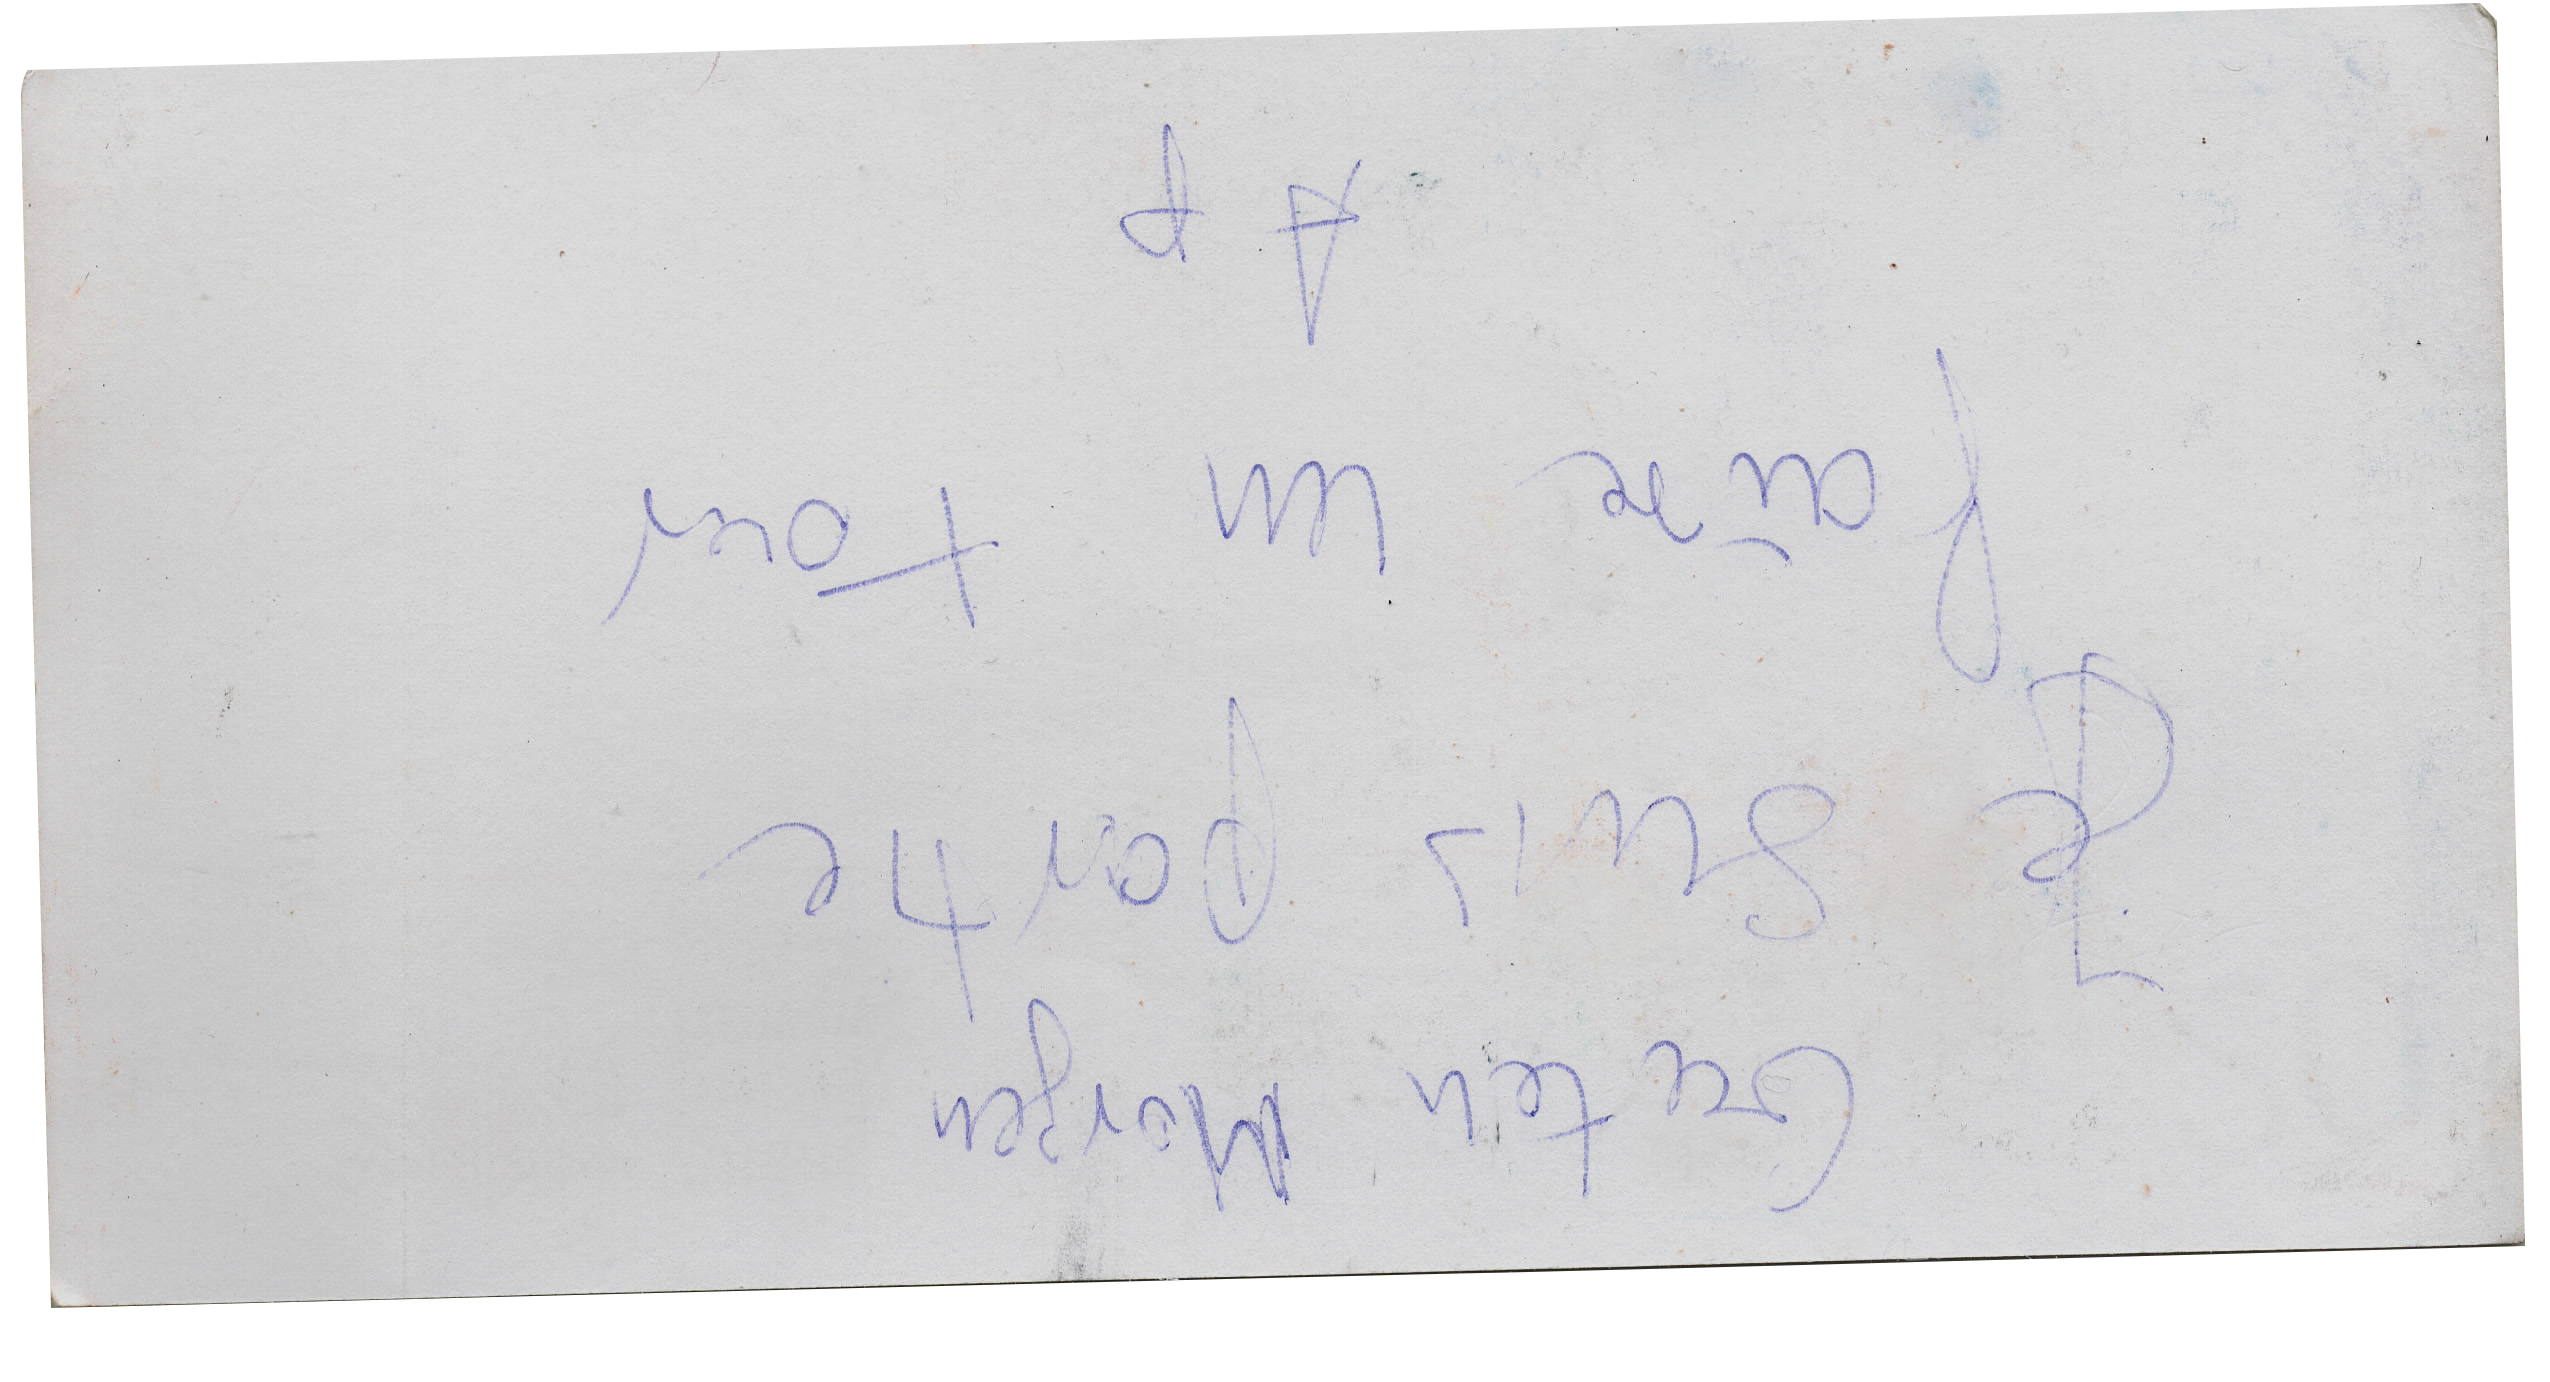 Guten Morgen
Je suis parte
faire un tour
A P